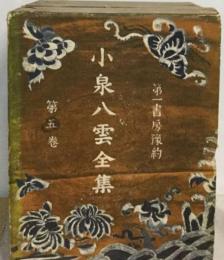 第一書房豫約
小泉八雲全集
第五卷